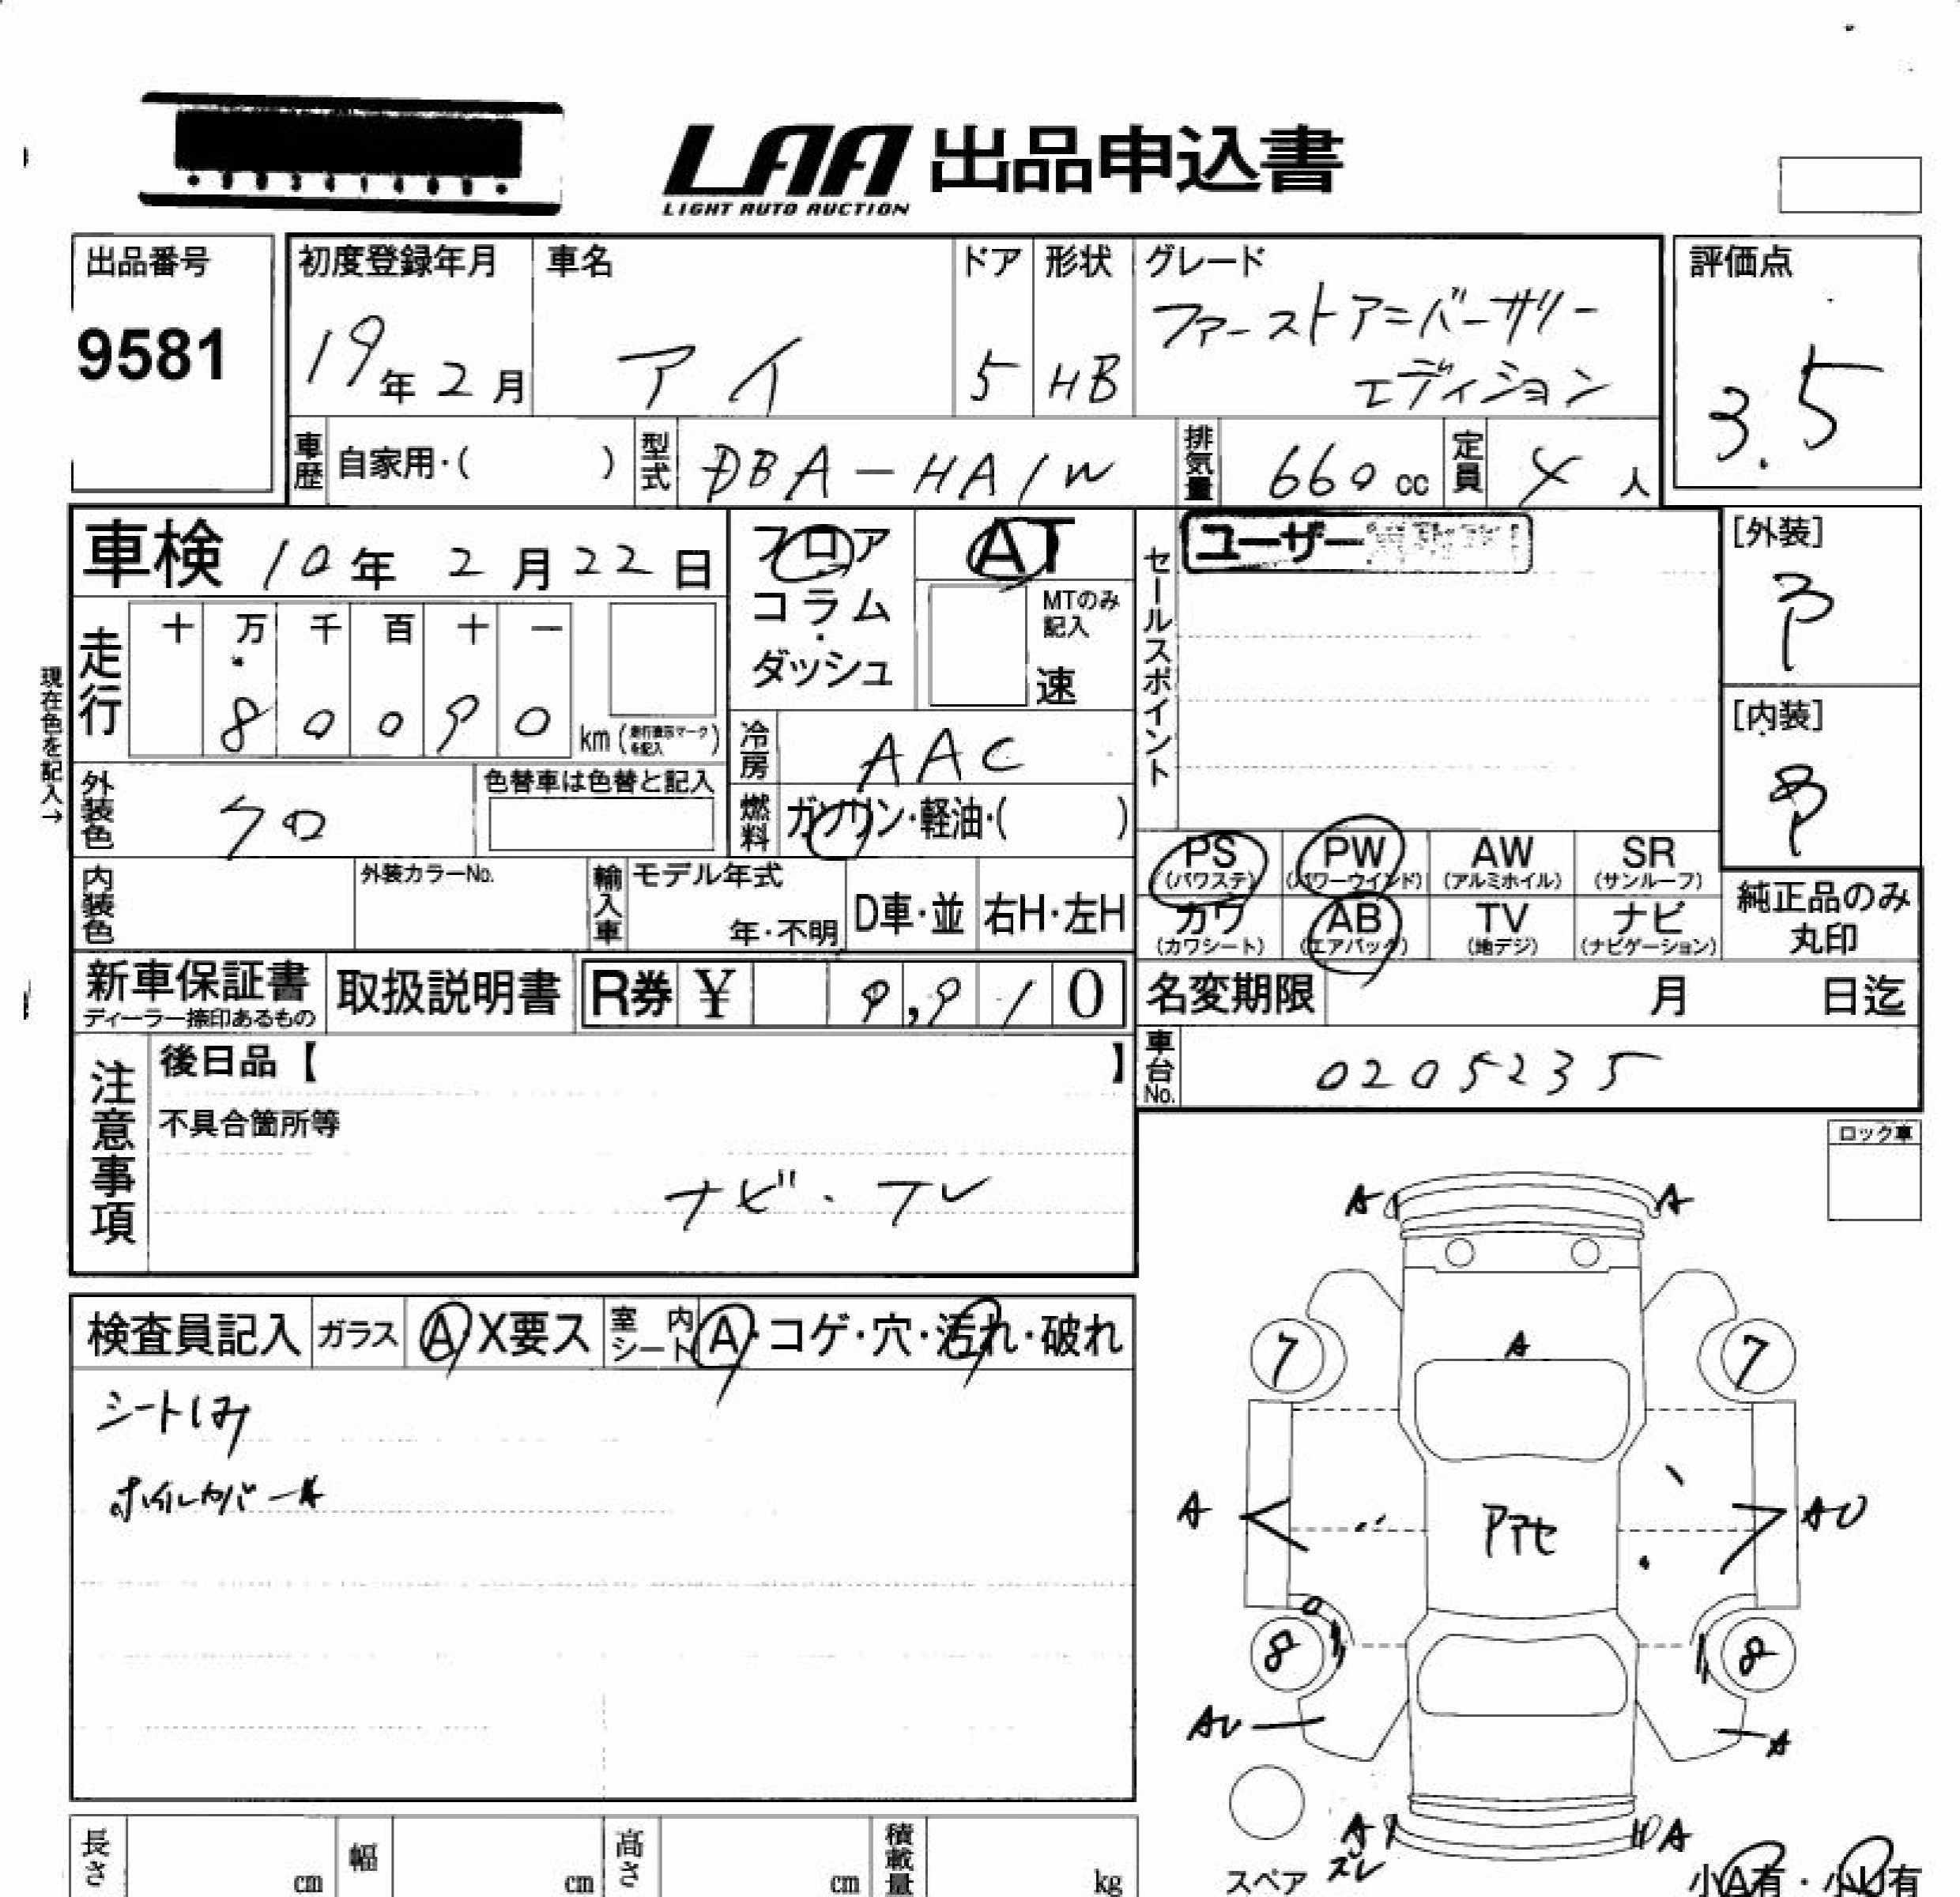 LAA 出品申込書
LIGHT AUTO AUCTION
出品番号
9581
初度登録年月
19年2月
車名
アイ
ドア
5
形状
HB
グレード
ファーストアニバーサリー
エディション
評価点
3.5
車歴 自家用・( )
型式 DBA-HA1W
排気量 660cc
定員 4人
車検 10年2月22日
フロア
コラム
・
ダッシュ
AT
MTのみ
記入
速
セールスポイント
ユーザー
[外装]
[内装]
現在色を記入→
走行
十 万 千 百 十 一
8 0 0 9 0 km
冷房 AAC
外装色 クロ
色替車は色替と記入
燃料 ガソリン・軽油・( )
内装色
外装カラーNo.
輸入車
モデル年式
年・不明
D車・並
右H・左H
PS (パワステ)
PW (パワーウインド)
AW (アルミホイル)
SR (サンルーフ)
カワ (カワシート)
AB (エアバック)
TV (地デジ)
ナビ (ナビゲーション)
純正品のみ
丸印
新車保証書
ディーラー捺印あるもの
取扱説明書
R券 ¥ 9,910
名変期限 月 日迄
車台No. 0205235
注意事項
後日品【 】
不具合箇所等
ナビ・フレ
ロック車
検査員記入
ガラス A X要ス
室内シート A・コゲ・穴・汚れ・破れ
シートしみ
ホイルカバーA
A
A
7
A
7
A
AU
8
8
AU
A
A
ズレ
A
スペア
小A有・小U有
長さ cm
幅 cm
高さ cm
積載量 kg